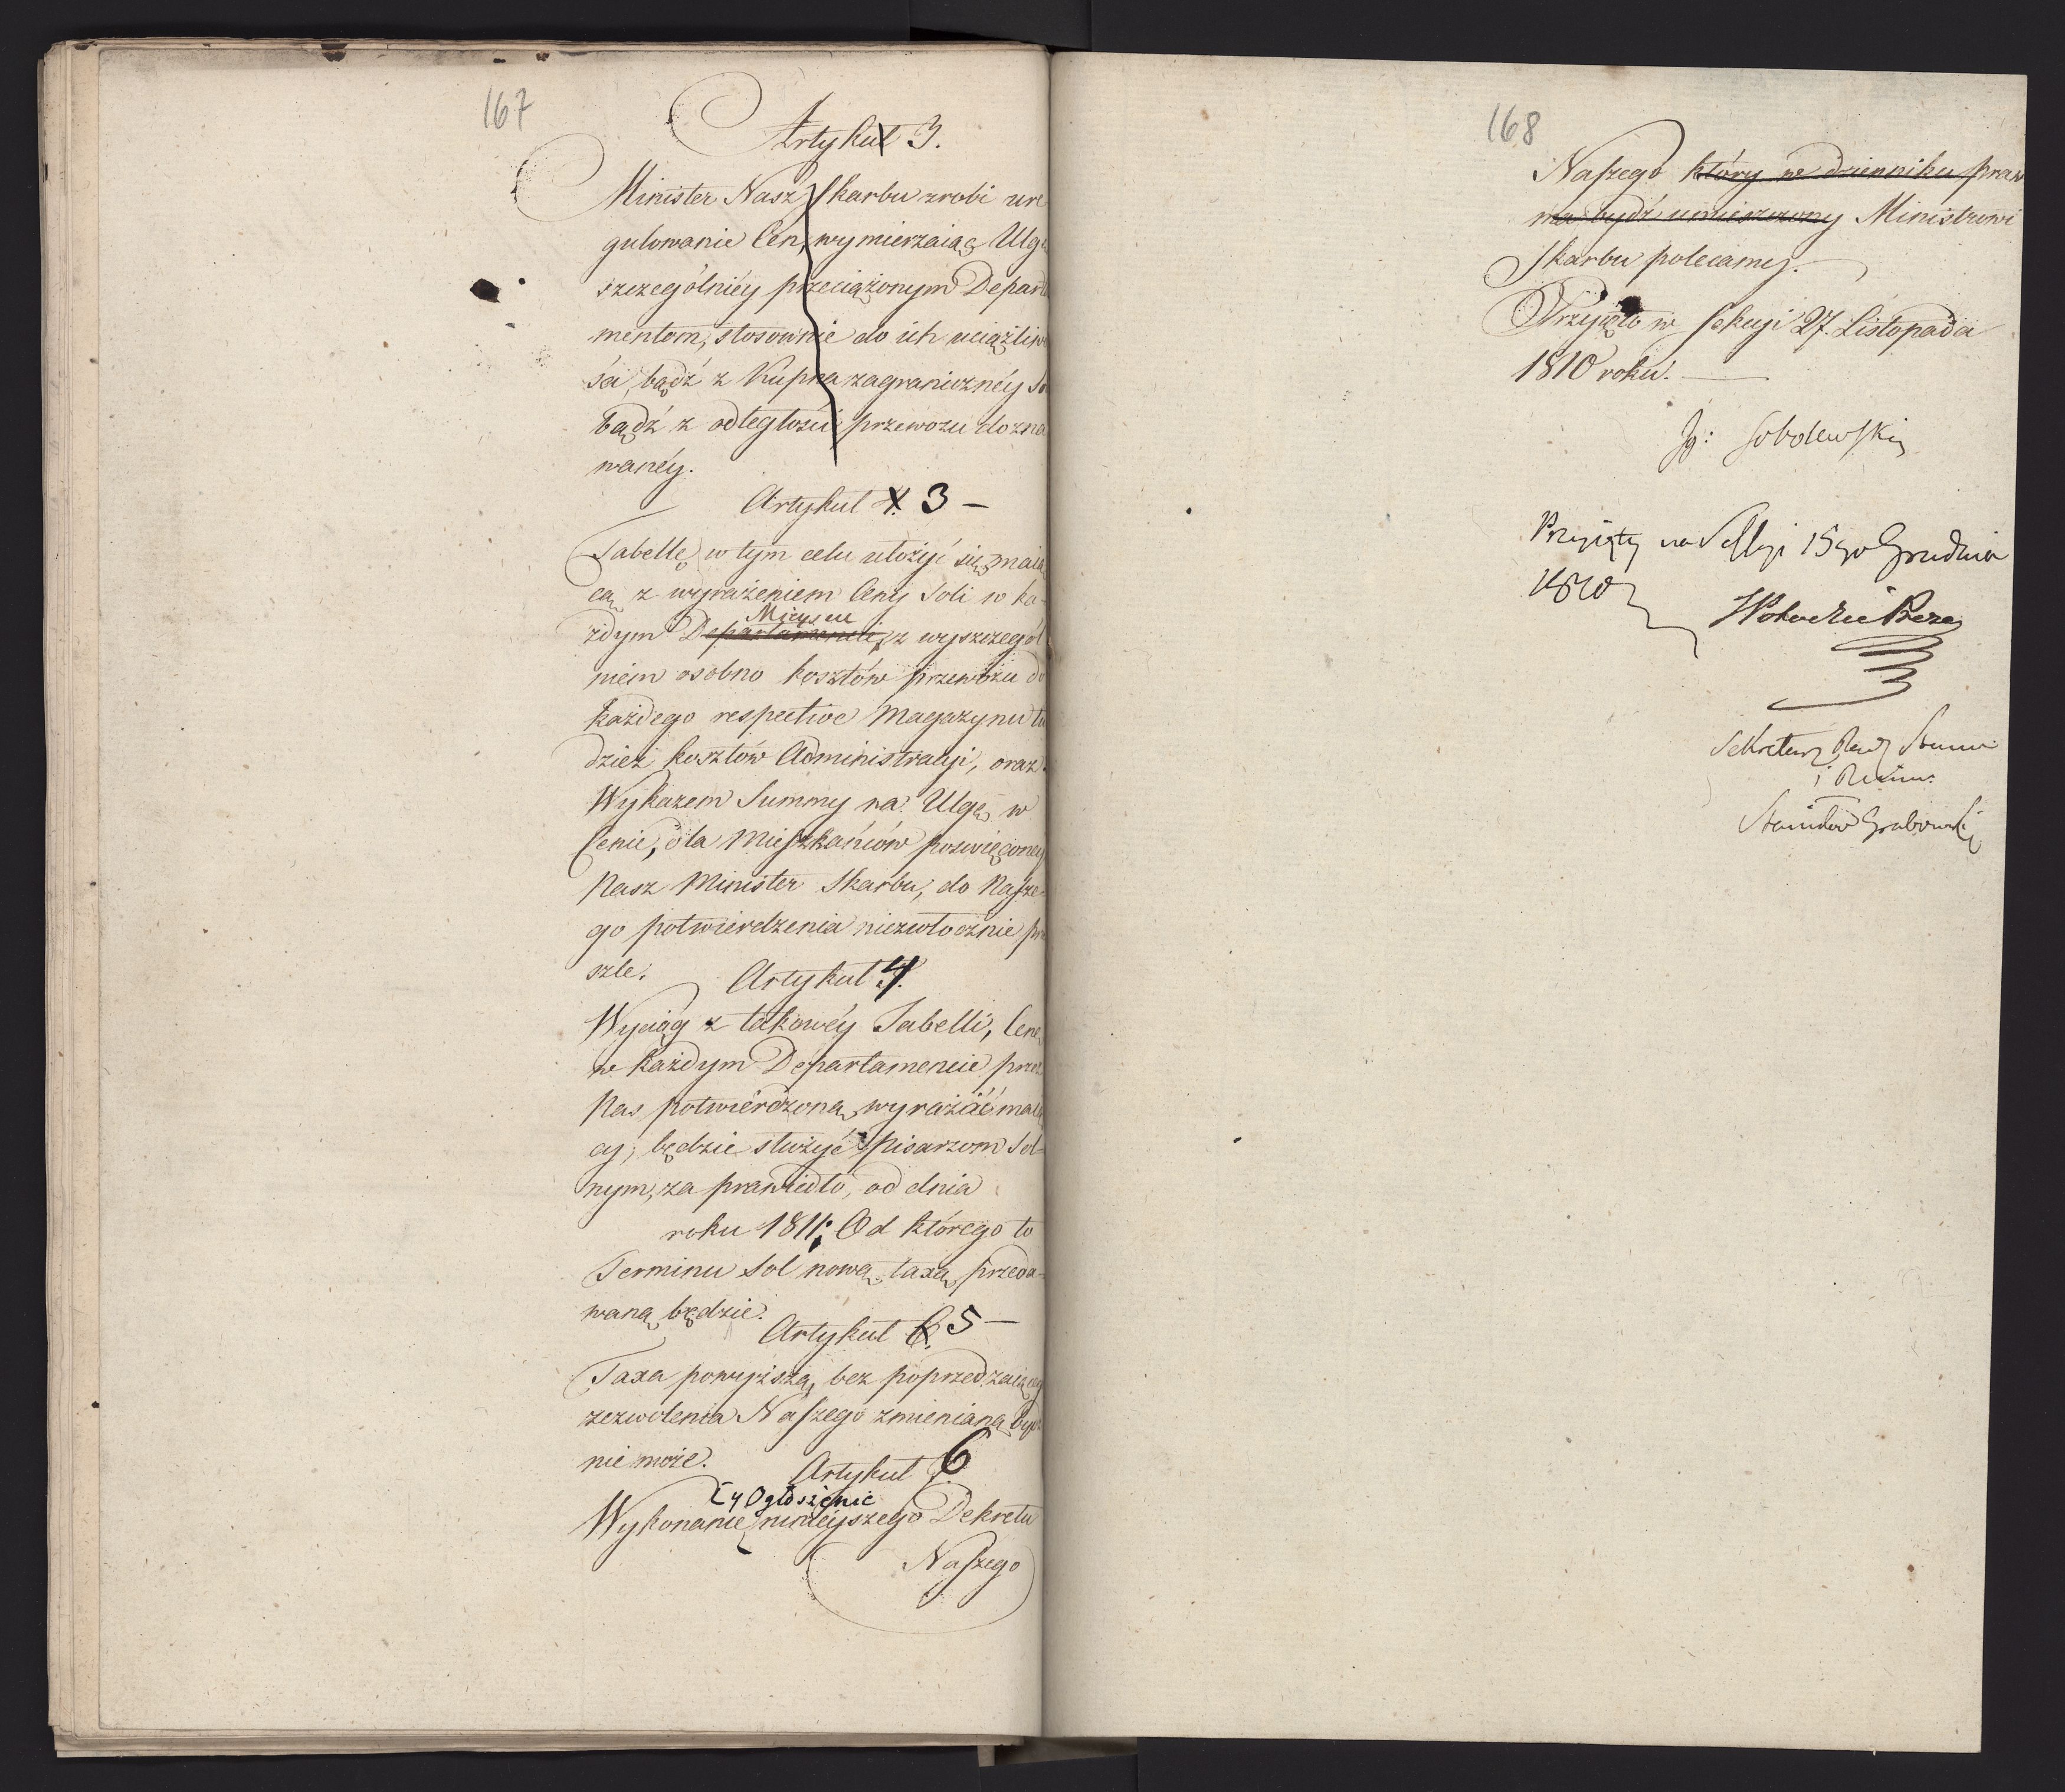 167
Artykuł 3.
Minister Nasz Skarbu zrobi ure
gulowanie Cen, wymierzaiąc Ulgę
szczególniéy przeciążonym Departa
mentom, stosownie do ich uciążliwo
ści, bądź z Kupna zagranicznéy So
bądź z odległości przewozu dozna
wanéy.
Artykuł 4. 3 —
Tabellę w tym celu ułożyć się maią
cą z wyrażeniem Ceny Soli w ka-
Mieyscu
żdym Departamencie, z wyszczegól
niem osobno kosztów przewozu do
każdego respective Magazynu tu
dzież kosztów Administracyi, oraz
Wykazem Summy na Ulgę w
Cenie, dla Mieszkańców poświęconey
Nasz Minister Skarbu, do Nasze-
go potwierdzenia niezwłocznie prze
szle.
Artykuł 4.
Wyciąg z takowéy Tabelli, Cenę
w każdym Departamencie przez
Nas potwierdzoną wyrażać maią
cy, będzie służyć Pisarzom Sol-
nym, za prawidło, od dnia
roku 1811; Od którego to
Terminu Sol nową taxą przeda-
waną będzie.
Artykuł 6. 5 —
Taxa powyższa, bez poprzedzaiącego
zezwolenia Naszego zmienianą bydź
nie może.
Artykuł 6
[y Ogłoszenie
Wykonanie ninieyszego Dekretu
Naszego
168
Naszego który w dzienniku praw
ma bydź umieszczony Ministrowi
Skarbu polecamy.
Przyięto w Sekcyi 27. Listopada
1810 roku.
Ig: Sobolewski
Przyięty na Sessyi 15go Grudnia
1810
Sekretarz Rady Stanu
i
Stanisław Grabowski